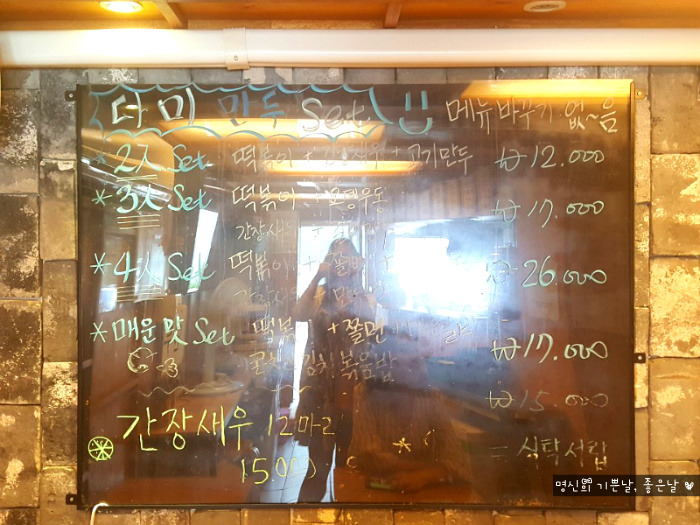 다미 만두 Set 메뉴 바꾸기 없~음
*2人 Set 떡볶이 + + 고기만두 ₩12.000
*3人 Set 떡볶이 + 오뎅우동 ₩17.000
간장새우 +
*4人 Set 떡볶이 + 쫄면 + 26.000
간장새우
*매운맛 Set 떡볶 +쫄면 ₩17.000
김치 볶음밥
₩15.000
간장새우 12마리
15.000
= 식탁서랍
명신의 기쁜날, 좋은날